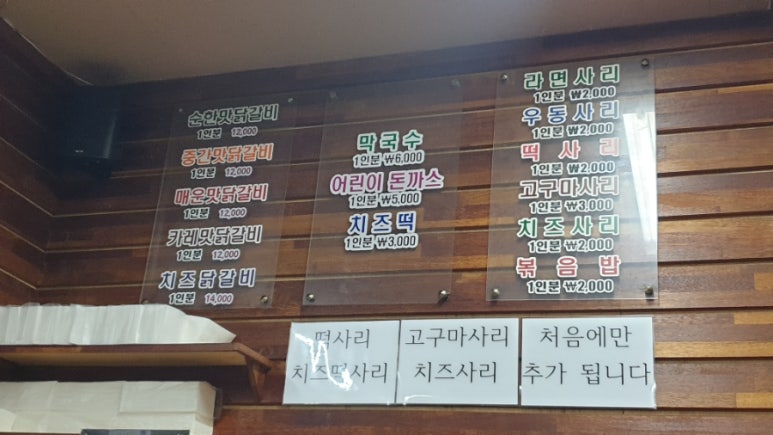 순한맛닭갈비
1인분 12,000
중간맛닭갈비
1인분 12,000
매운맛닭갈비
1인분 12,000
카레맛닭갈비
1인분 12,000
치즈닭갈비
1인분 14,000
막국수
1인분 ₩6,000
어린이 돈까스
1인분 ₩5,000
치즈떡
1인분 ₩3,000
라면사리
1인분 ₩2,000
우동사리
1인분 ₩2,000
떡사리
1인분 ₩2,000
고구마사리
1인분 ₩3,000
치즈사리
1인분 ₩2,000
볶음밥
1인분 ₩2,000
떡사리
치즈떡사리
고구마사리
치즈사리
처음에만
추가 됩니다